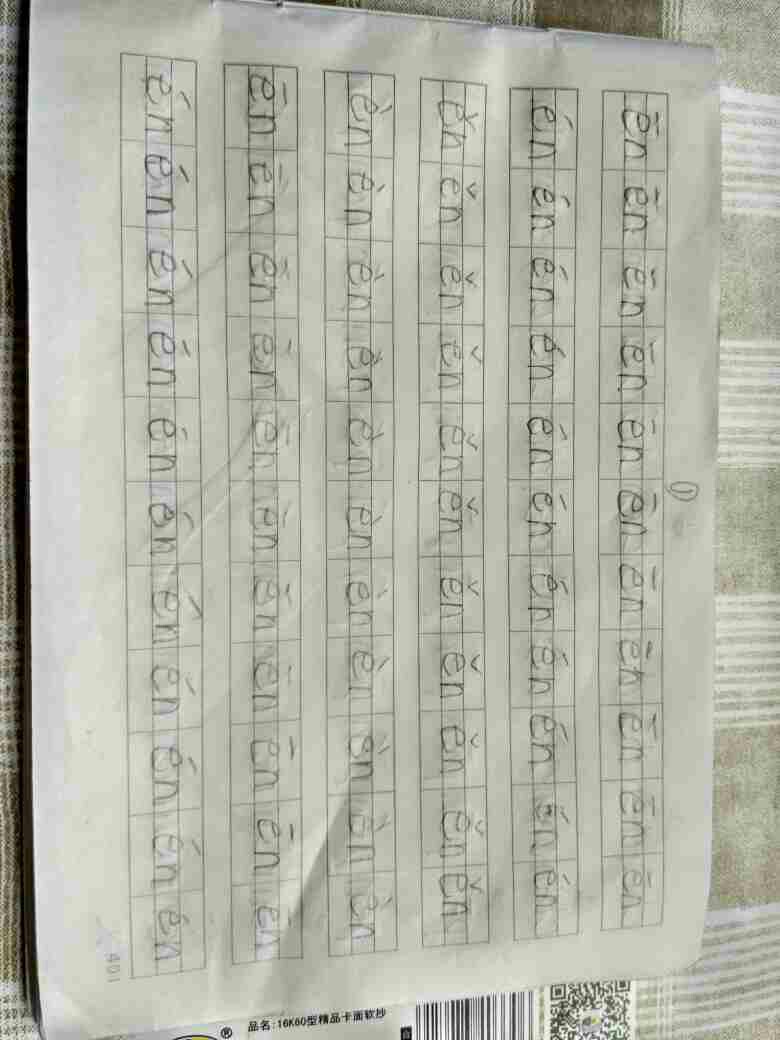 ①
ēn ēn ēn ēn ēn ēn ēn ēn ēn ēn ēn
én én én én én én én én én én én
ěn ěn ěn ěn ěn ěn ěn ěn ěn ěn ěn
èn èn èn èn èn èn èn èn èn èn èn
ēn ēn ēn ēn ēn ēn ēn ēn ēn ēn ēn
én én én én én én én én én én én
401
® 品名:16K60型精品卡面软抄